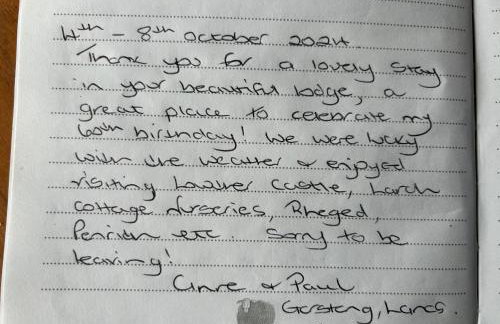 4th - 8th October 2024.
Thank you for a lovely stay
in your beautiful lodge, a
great place to celebrate my
60th birthday! We were lucky
with the weather & enjoyed
visiting Lowther Castle, Larch
Cottage Nurseries, Rheged,
Penrith etc. Sorry to be
leaving!
& Paul
Garstang, Lancs.